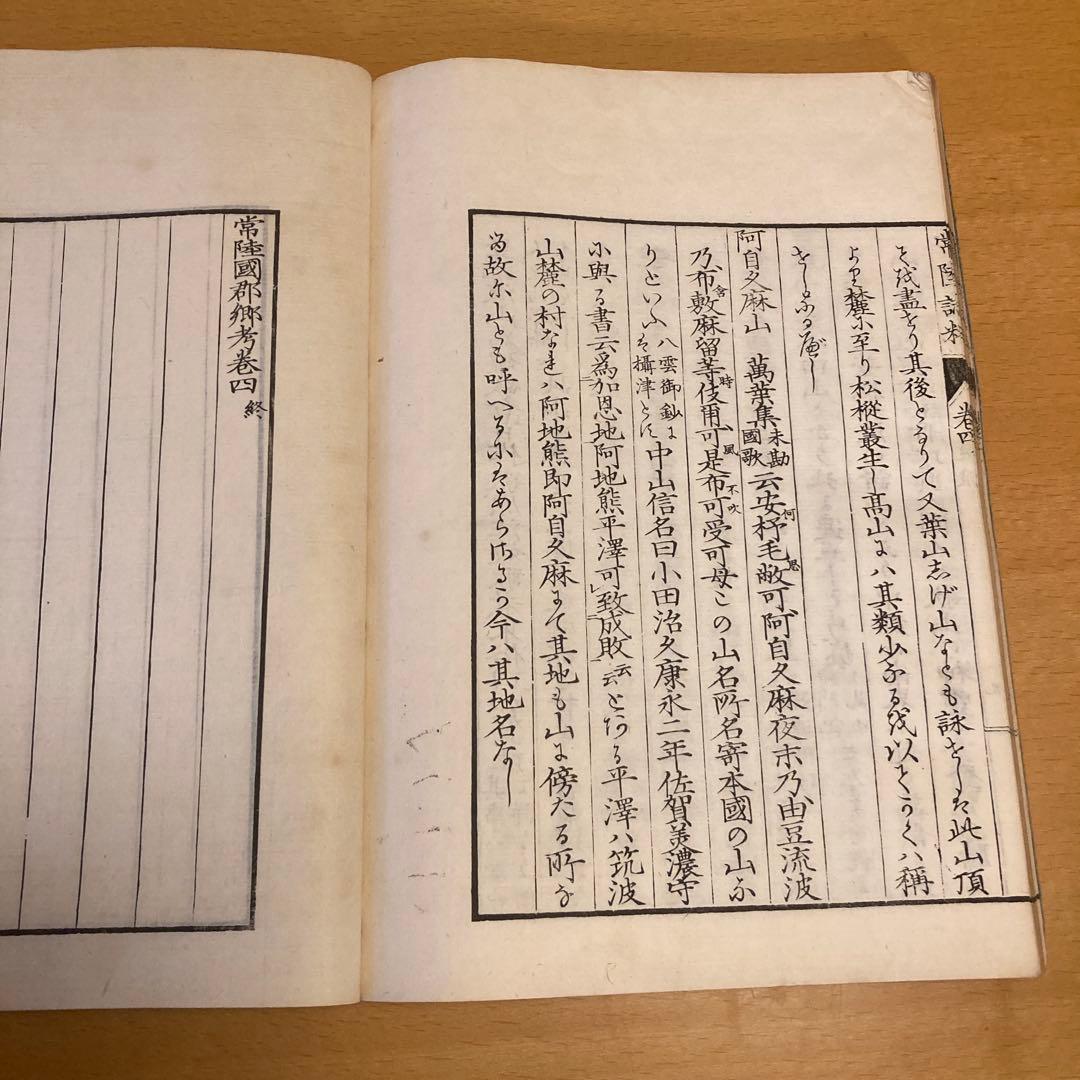 常陸誌料 卷四
盡せり其後となりて又葉山志げ山なとも詠をしは此山頂
より麓に至り松樅叢生し髙山にハ其類少なる以てかくハ稱
せしなるべし
阿自久麻山 萬葉集未勘國歌云安杼毛敝可阿自久麻夜末乃由豆流波
乃布敷麻留等伎爾可是布可受可母この山名所名寄本國の山な
りといふ八雲御鈔には攝津とす中山信名曰小田治久康永二年佐賀美濃守
に與る書云爲加恩地阿地熊平澤可致成敗云云とある平澤ハ筑波
山麓の村なれハ阿地熊即阿自久麻にて其地も山に傍たる所な
る故に山とも呼へるにはあらさるか今ハ其地名なし
常陸國郡鄉考卷四終